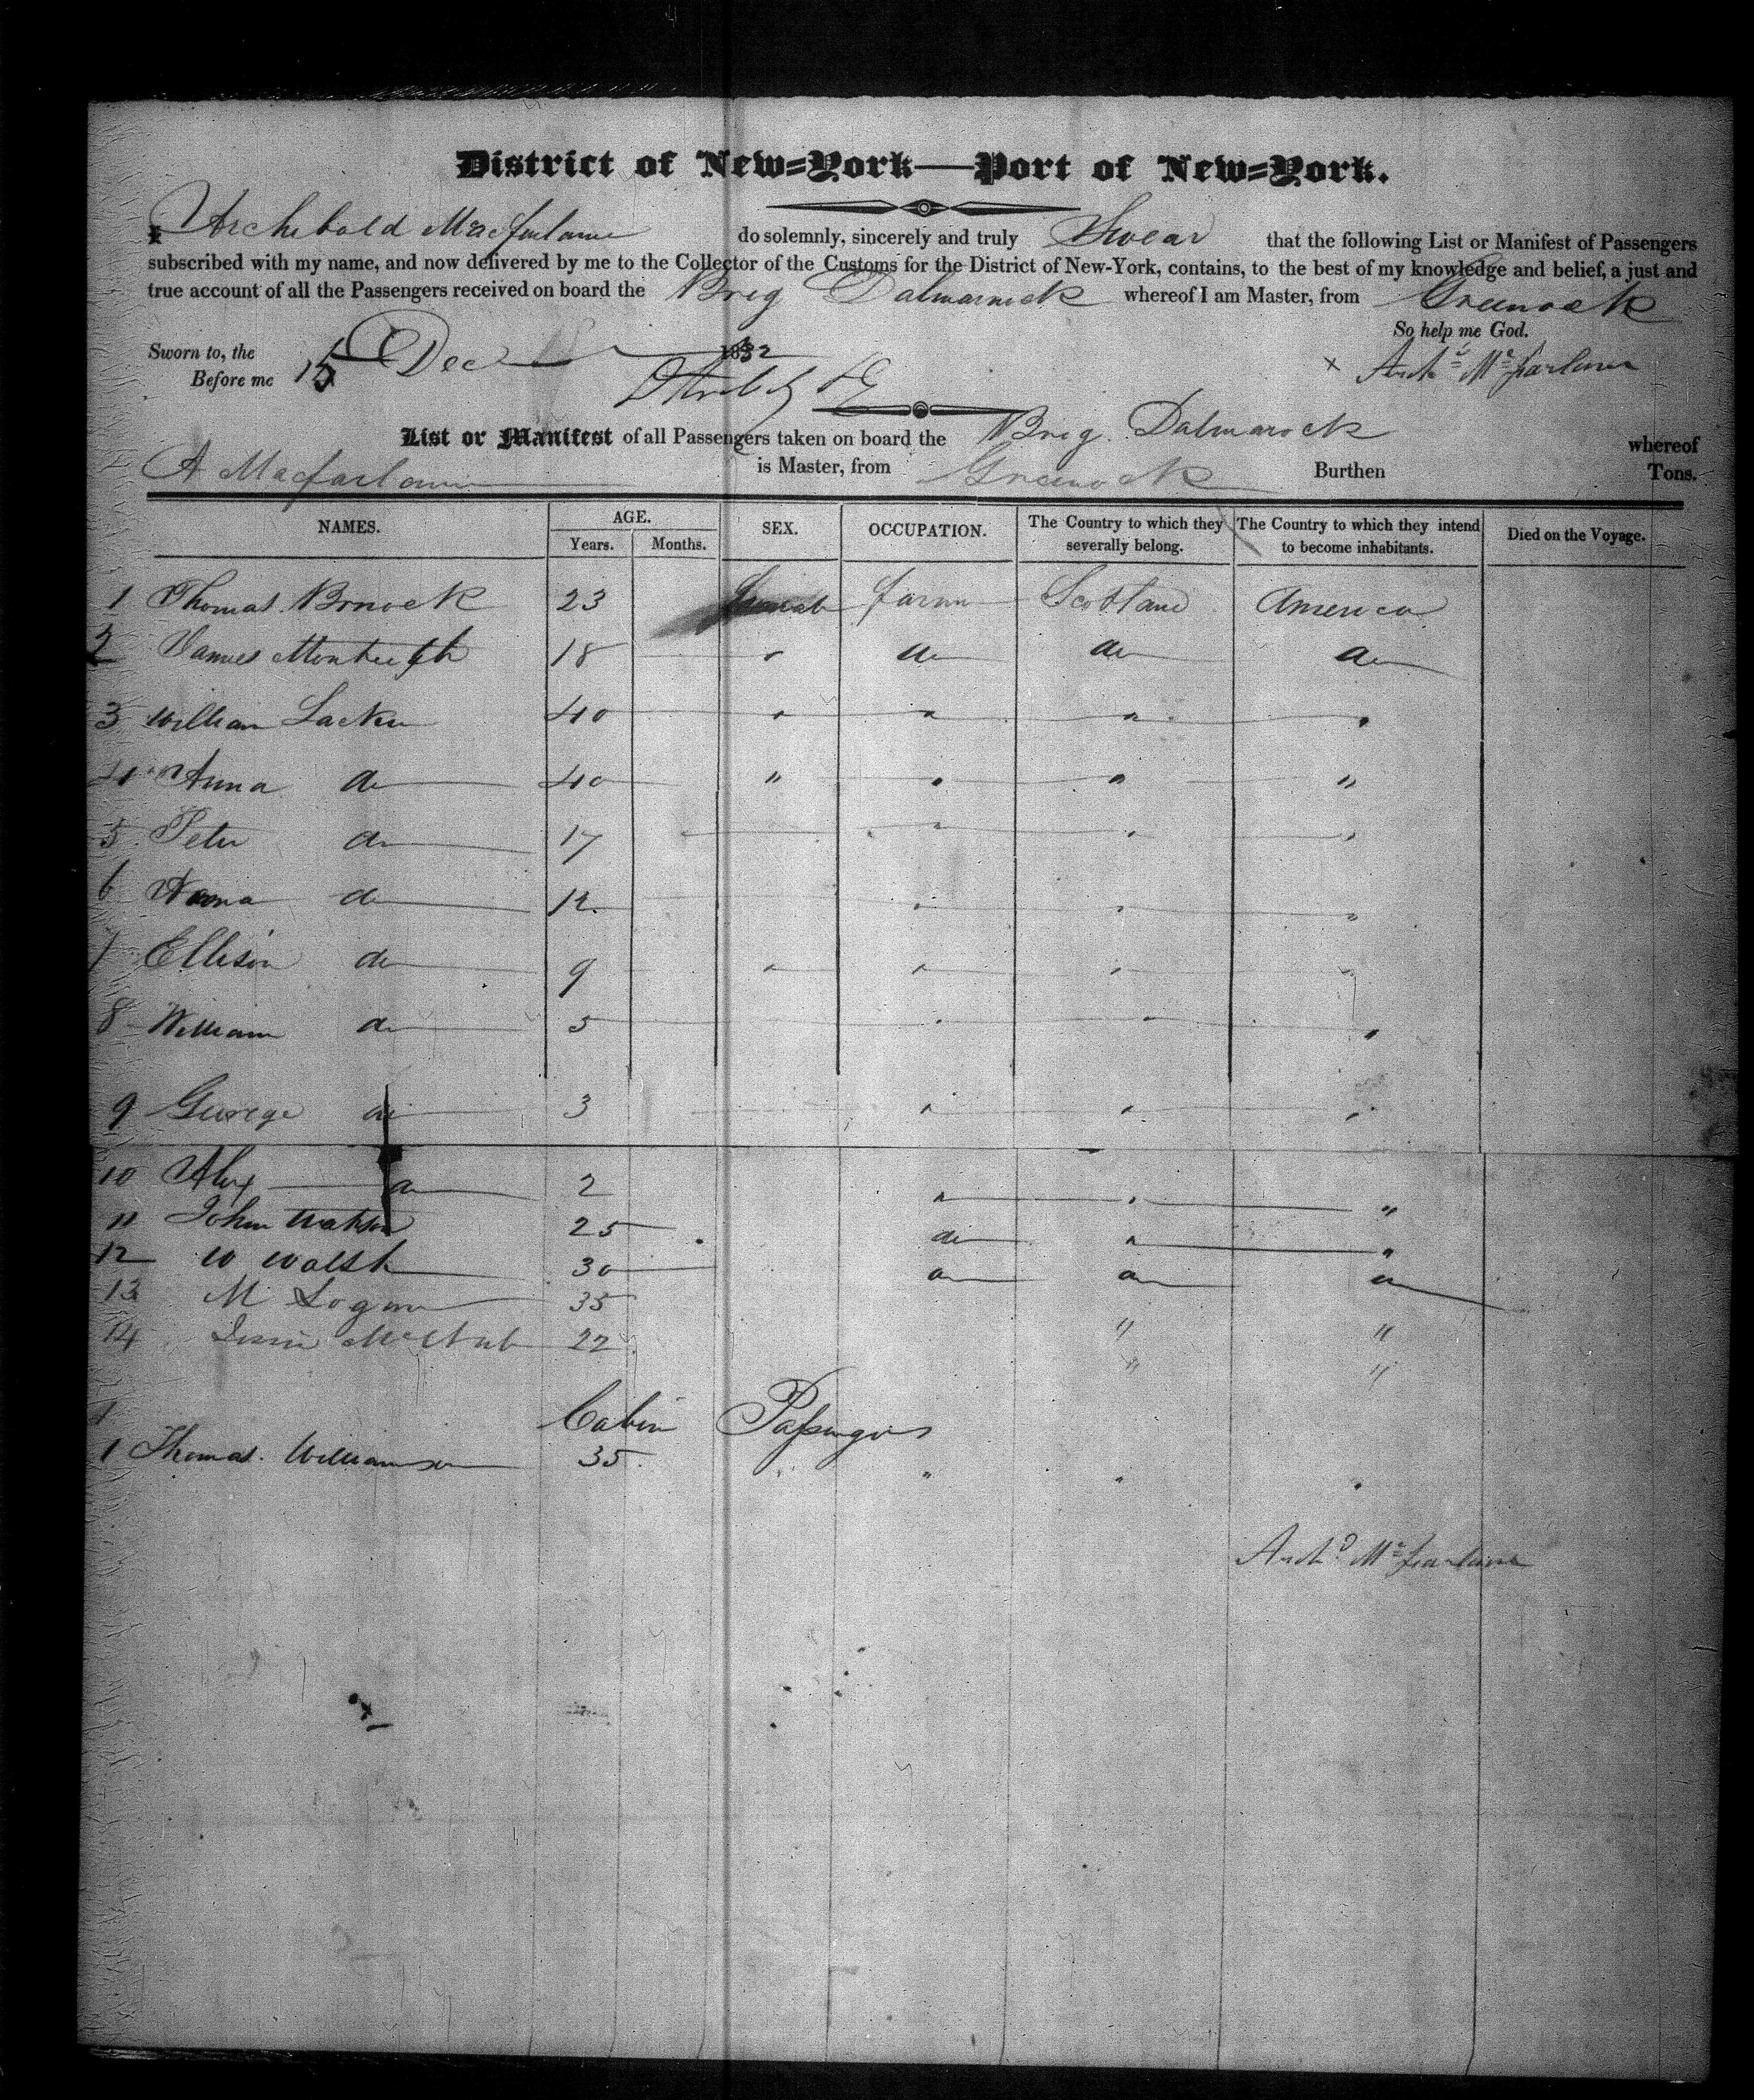 District of New=York—Port of New=York.
I Archibald Macfarlane do solemnly, sincerely and truly Swear that the following List or Manifest of Passengers
subscribed with my name, and now delivered by me to the Collector of the Customs for the District of New-York, contains, to the best of my knowledge and belief, a just and
true account of all the Passengers received on board the Brig Dalmarnock whereof I am Master, from Greenock
So help me God.
Sworn to, the 15 Dec 1832
Before me
Archd McFarlane
List or Manifest of all Passengers taken on board the Brig Dalmarock whereof
A Macfarlane is Master, from Greenock Burthen Tons.
NAMES. AGE. SEX. OCCUPATION. The Country to which they severally belong. The Country to which they intend to become inhabitants. Died on the Voyage.
Years. Months.
1 Thomas 23 farm Scotland America
2 James Monteith 18 " do do do
3 William 40 " " " "
4 Anna do 40 " " " "
5 Peter do 17 " " "
6 do 12 " " "
7 Ellison do 9 " " " "
8 William do 5 " " "
9 George do 3 " " "
10 Alex do 2 " " "
11 John Watson 25 do " "
12 W Walsh 30 do do do
13 M Logan 35 " "
14 McNab 22 " "
Cabin Passengers
1 Thomas Williamson 35 " " "
Archd McFarlane